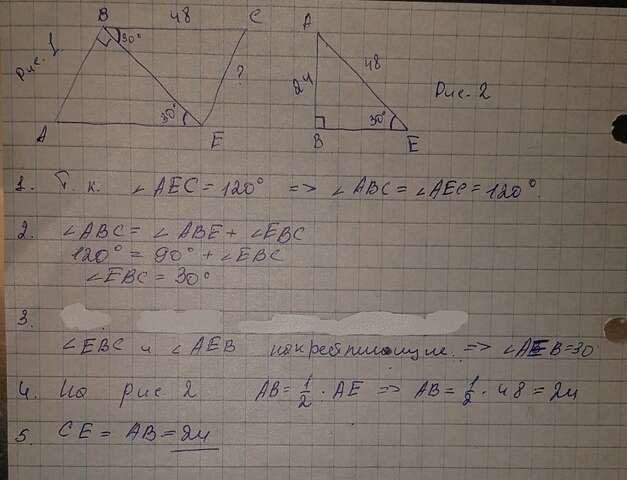 B 48 C
A
Рис. 1
30°
?
24
48
30°
A E
Рис. 2
B 30° E
1. Т. к. ∠AEC = 120° => ∠ABC = ∠AEC = 120°.
2. ∠ABC = ∠ABE + ∠EBC
120° = 90° + ∠EBC
∠EBC = 30°
3.
∠EBC и ∠AEB накрестлежащие => ∠AEB = 30
4. На рис 2 AB = 1/2 · AE => AB = 1/2 · 48 = 24
5. CE = AB = 24